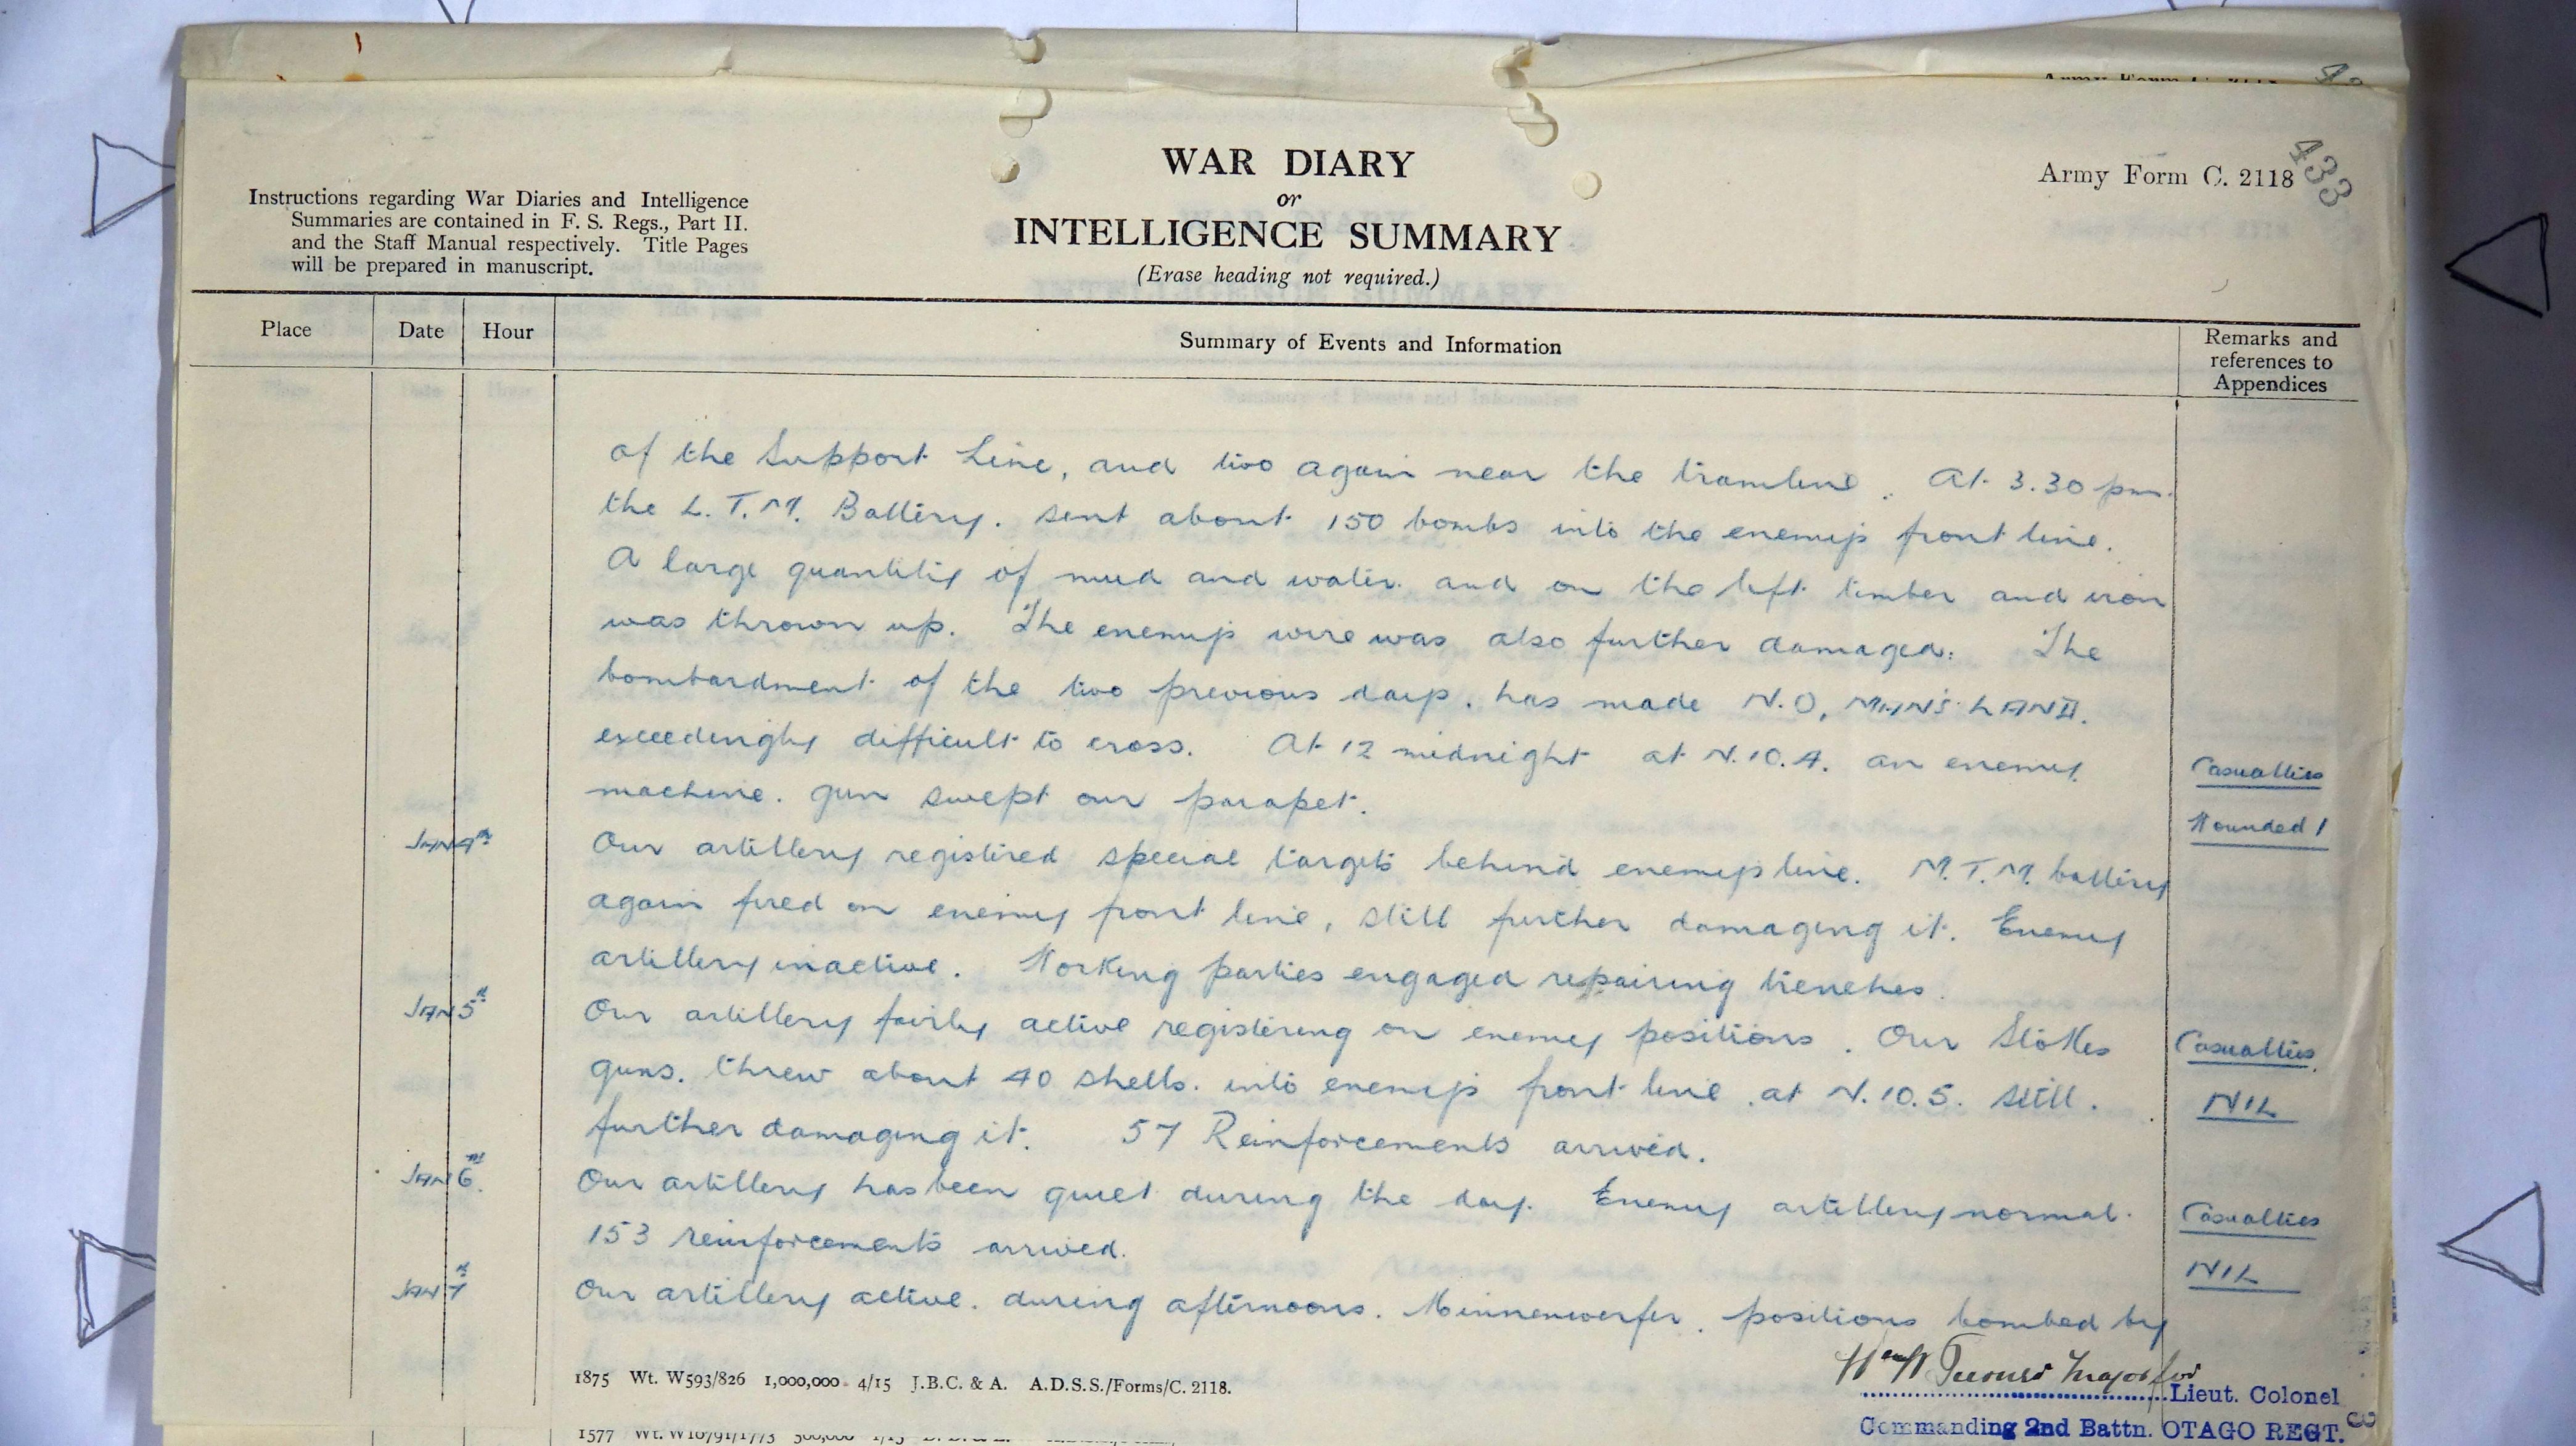 Army Form C. 2118
433
Instructions regarding War Diaries and Intelligence
Summaries are contained in F. S. Regs., Part II.
and the Staff Manual respectively. Title Pages
will be prepared in manuscript.
WAR DIARY
or
INTELLIGENCE SUMMARY
(Erase heading not required.)
Place Date Hour Summary of Events and Information Remarks and
references to
Appendices
of the Support Line, and two again near the tramline. At 3.30 pm.
the L. T. M. Battery. sent about 150 bombs into the enemy's front line.
A large quantity of mud and water and on the left timber and iron
was thrown up. The enemy's wire was also further damaged. The
bombardment of the two previous days. has made N.O, MAN'S LAND.
exceedingly difficult to cross. At 12 midnight at N.10.4. an enemy
Casualties
machine. gun swept our parapet.
Wounded 1
JAN 4th Our artillery registered special targets behind enemy's line. M.T.M. battery
again fired on enemy front line, still further damaging it. Enemy
artillery inactive. Working parties engaged repairing trenches.
JAN 5th Our artillery fairly active registering on enemy positions. Our Stokes Casualties
guns. threw about 40 shells. into enemy's front line at N.10.5. still. NIL
further damaging it. 57 Reinforcements arrived.
JAN 6th Our artillery has been quiet during the day. Enemy artillery normal. Casualties
153 reinforcements arrived. NIL
JAN 7th Our artillery active. during afternoons. Minnenwerfer. positions bombed by
Major for
Lieut. Colonel
Commanding 2nd Battn. OTAGO REGT.
1875 Wt. W593/826 1,000,000 4/15 J.B.C. & A. A.D.S.S./Forms/C. 2118.
1577